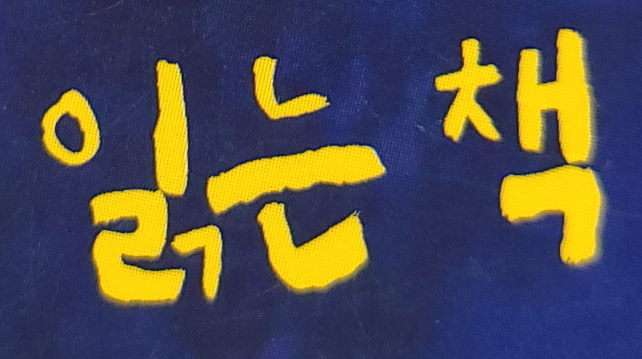 읽는 책